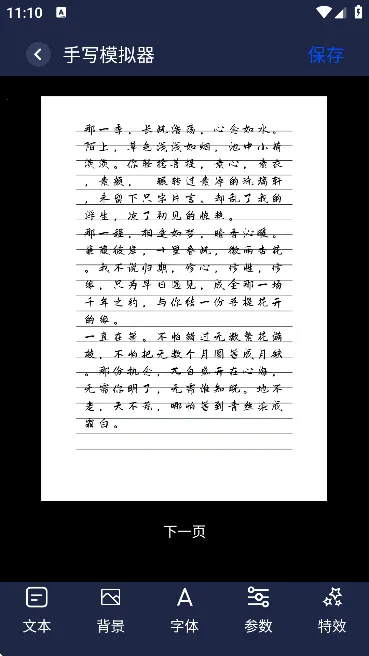 11:10
手写模拟器
保存
那一季,长风浩荡,心念如水。
陌上,草色浅浅如烟,池中小荷
淡淡。你轻捻菩提,素心,素衣
,素颜,
,未留下只字片言。却乱了我的
浮生,凉了初见的惊艳。
那一程,相逢如梦,暗香沁暖。
蒹葭彼岸,十里春风,微雨杏花
。我不说归期,修心,修雅,修
缘,只为早日遇见,成全那一场
千年之约,与你结一份菩提花开
的缘。
一直在等。不怕错过无数繁花满
枝,不怕把无数个月圆等成月缺
。那份执念,兀自盛开在心海,
无需你明了,无需谁知晓。地不
老,天不荒,哪怕等到青丝染成
霜白。
下一页
文本
背景
字体
参数
特效